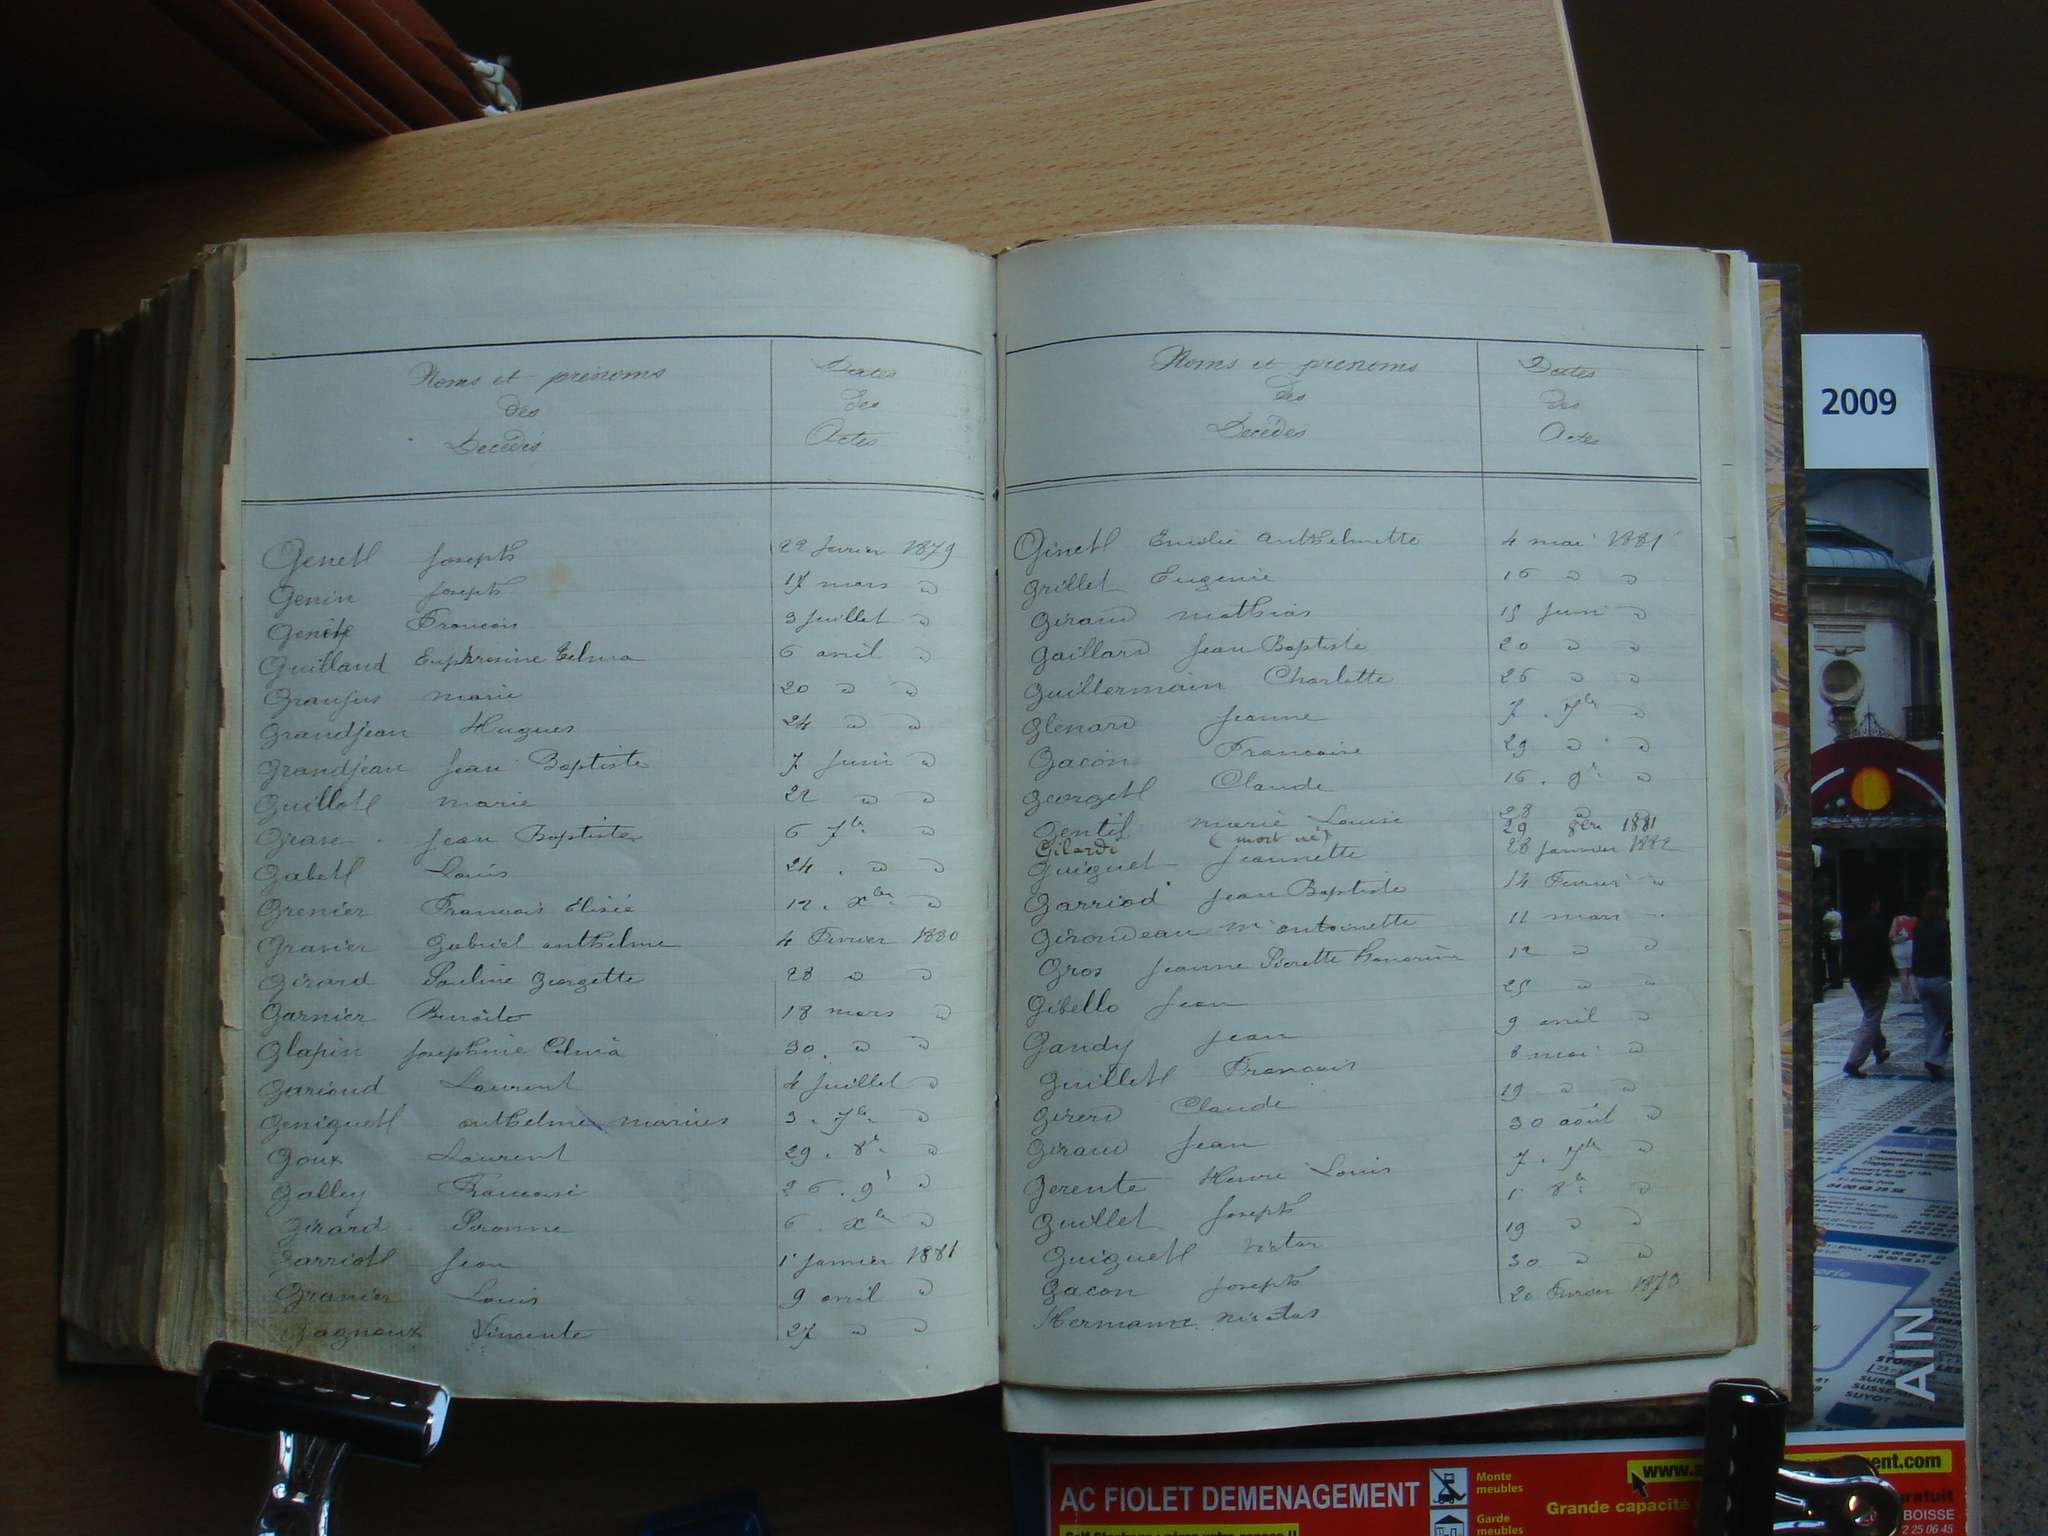 Noms et prénoms
des
Décédés
Dates
des
Actes
Genet Joseph 22 fevrier 1879
Genin Joseph 17 mars "
Francois 3 Juillet "
Guilland Euphrosine 6 avril "
Granjus marie 20 " "
Grandjean Hugues 24 " "
Grandjean Jean Baptiste 7 Juin "
Guillot marie 22 " "
Jean Baptiste 6 7bre "
Gabet Louis 24 . " "
Grenier Francois Elisée 12 . Xbre "
Granier Gabriel anthelme 4 Fevrier 1880
Girard Pauline Georgette 28 " "
Garnier Benoite 18 mars "
Glapin Josephine 30 . " "
Garioud Laurent 4 Juillet "
Geniquet anthelme marius 3 . 7bre "
Goux Laurent 29 . 8e "
Galley 26 . 9e "
Girard Peronne 6 . Xbre "
Garriot Jean 1er Janvier 1881
Granier Louis 9 avril "
Gagneux Vincente 27 " "
Noms et prenoms
des
Décédés
Dates
des
Actes
Ginet Emilie anthelmette 4 mai 1881
Grillet Eugenie 16 " "
Giraud mathias 15 Juin "
Gaillard Jean Baptiste 20 " "
Guillermain Charlotte 26 " "
Glenard Jeanne 7 . 7bre "
Gacon Francoise 29 " "
Georget Claude 16 . 9e "
Gentil marie Louise 28 "
Gilardi (mort né) 29 8bre 1881
Guiguet Jeannette 28 Janvier 1882
Garriod Jean Baptiste 14 Fevrier "
Girondeau Mie antoinette 11 mars "
Gros Jeanne Pierette 12 " "
Gibello Jean 25 " "
Gandy Jean 9 avril "
Guillet Francois 8 mai "
Girerd Claude 19 " "
Giraud Jean 30 août "
Gerente Henri Louis 7 . 7bre "
Guillet Joseph 1er 8bre "
Guiguet victor 19 " "
Gacon Joseph 30 " "
Hermann nicolas 20 Fevrier 1873
2009
AIN
AC FIOLET DEMENAGEMENT
Monte
meubles
Garde
meubles
Grande capacité
BOISSE
2 25 06 45